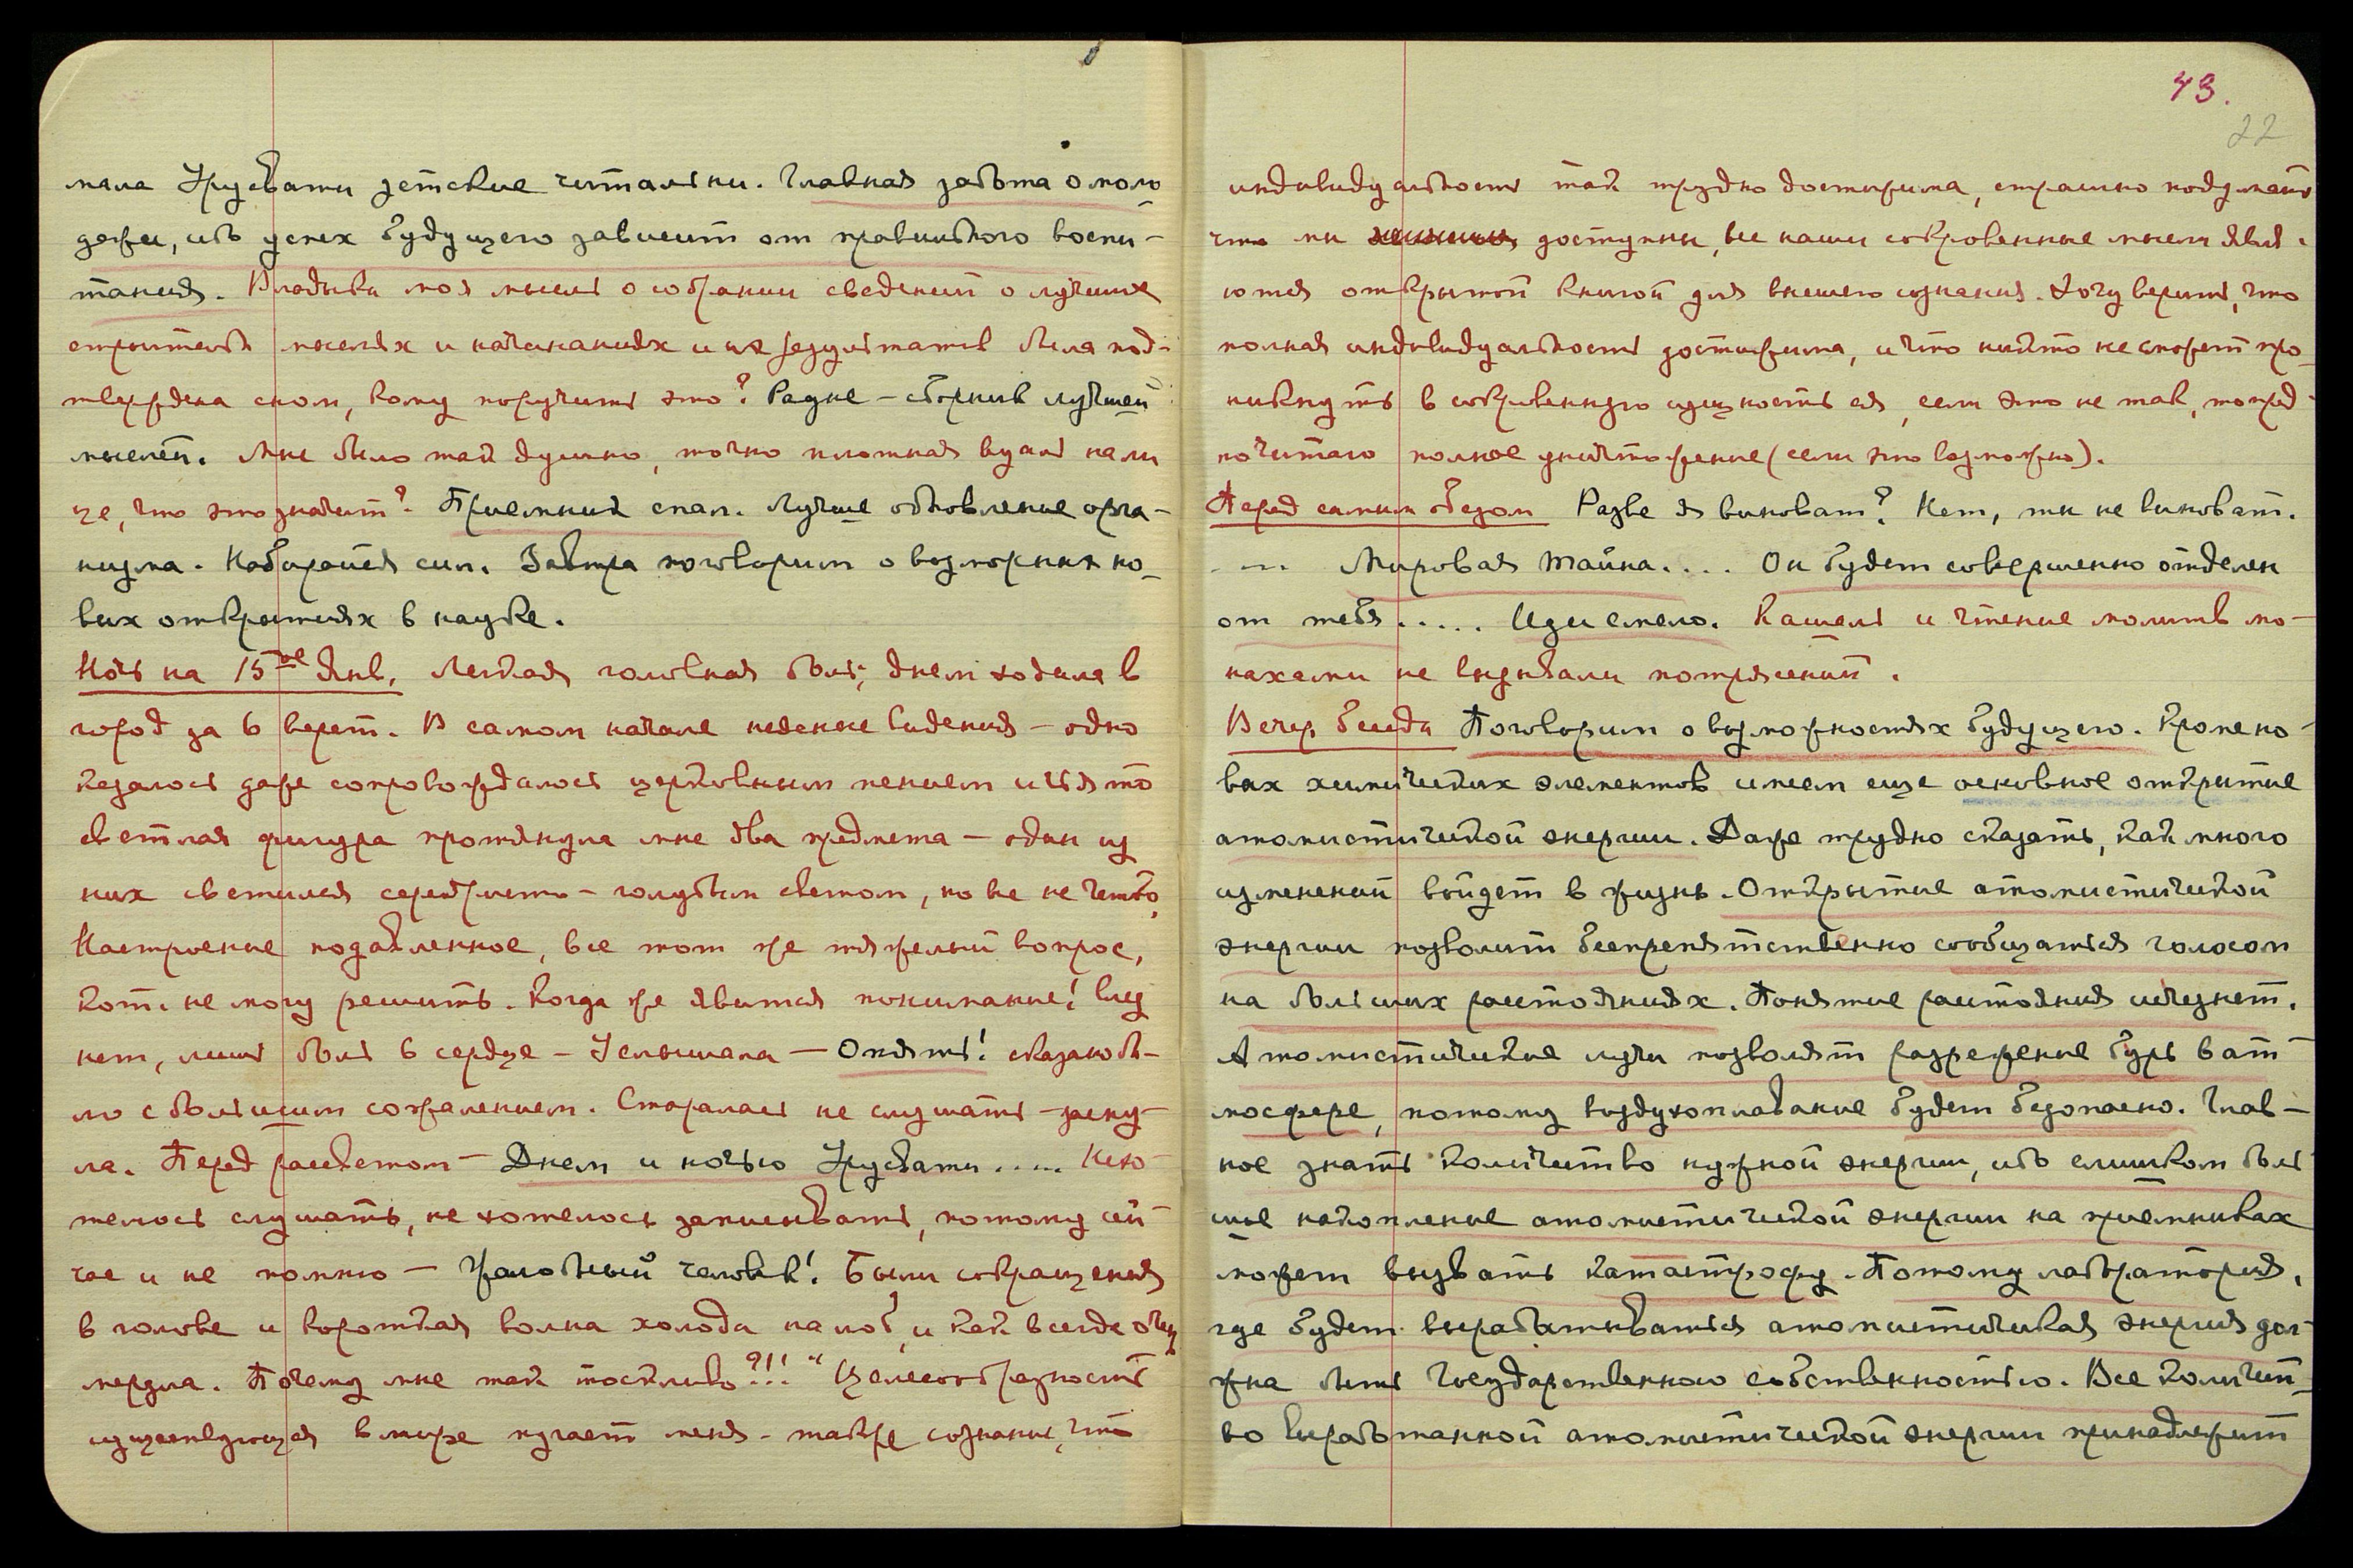 мала Урусвати детские читальни. Главная забота о моло-
дежи, ибо успех будущего зависит от правильного воспи-
тания. Владыка моя мысль о собрании сведений о лучших
строительн мыслях и начинаниях и их результатов была под-
тверждена сном, кому поручить это? Радне – сборник лучшей
мыслей. Мне было так душно, точно плотная вуаль на ли
це, что это значит? Приемник спал. Лучше обновление орга-
низма. Набирайся сил. Завтра поговорим о возможных но-
вых открытиях в науке.
Ночь на 15ое Янв. Легкая головная боль, днем ходила в
город за 6 верст. В самом начале неясные видения – одно
казалось даже сопровождалось церковным пением и чья то
светлая фигура протянула мне два предмета – один из
них светился серебристо-голубым светом, но все не четко,
Настроение подавленное, все тот же тяжелый вопрос,
кот. не могу решить. Когда же явится понимание!
нет, лишь боль в сердце – Услышала – Опять! сказано бы-
ло с большим сожалением. Старалась не слушать – засну-
ла. Перед рассветом – Днем и ночью Урусвати..... Не хо-
телось слушать, не хотелось записывать, потому сей-
час и не помню – Жалобный человек! Были сокращения
в голове и короткая волна холода на лоб, и как всегда
мерзла. Почему мне так тоскливо?!! "Целесообразность
существующая в мире пугает меня – также сознание, что
43.
22
индивидуальность так трудно достижима, страшно подумать
что мы доступны, все наши сокровенные мысли явля-
ются открытой книгой для внешнего сознания. Хочу верить, что
полная индивидуальность достижима, и что никто не сможет про-
никнуть в сокровенную сущность ея, если это не так, то пред-
почитаю полное уничтожение (если это возможно).
Перед самым обедом Разве я виноват? Нет, ты не виноват.
.... Мировая тайна.... Он будет совершенно отделен
от тебя..... Иди смело. Кашель и чтение молитв мо-
нахами не вызывали потрясений.
Вечер. беседа Поговорим о возможностях будущего. Кроме но-
вых химических элементов имеем еще основное открытие
атомистической энергии. Даже трудно сказать, как много
изменений войдет в жизнь. Открытие атомистической
энергии позволит беспрепятственно сообщаться голосом
на больших расстояниях. Понятие расстояния исчезнет.
Атомистические лучи позволят разрежение бурь в ат-
мосфере, потому воздухоплавание будет безопасно. Глав-
ное знать количество нужной энергии, ибо слишком боль
шое накопление атомистической энергии на приемниках
может вызвать катастрофу. Потому лаборатория,
где будет вырабатываться атомистическая энергия дол-
жна быть Государственною собственностью. Все количест-
во выработанной атомистической энергии принадлежит